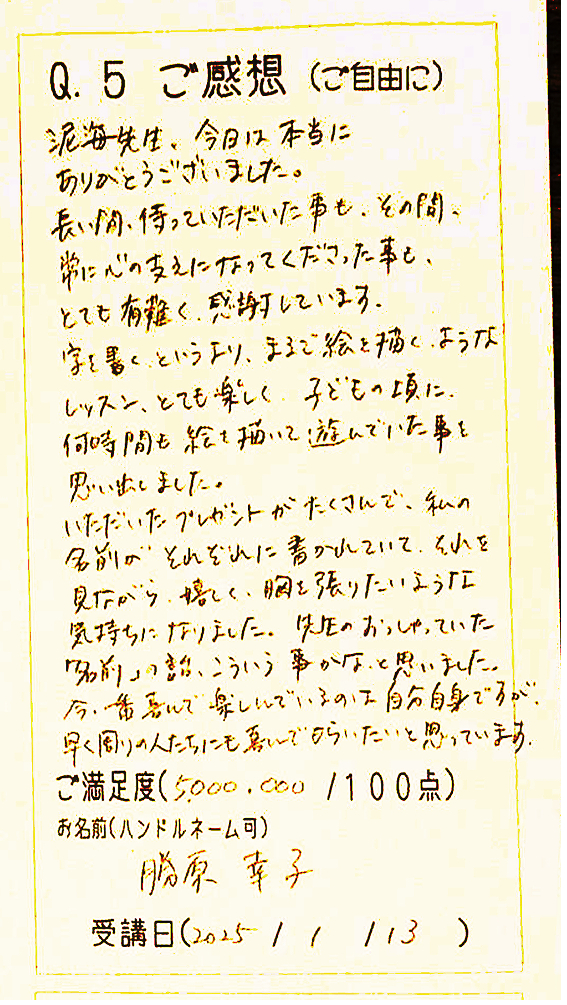 Q.5 ご感想(ご自由に)
泥海先生、今日は本当に
ありがとうございました。
長い間、待っていただいた事も、その間、
常に心の支えになってくださった事も、
とても有難く、感謝しています。
字を書く、というより、まるで絵を描く、ような
レッスン、とても楽しく、子どもの頃に、
何時間も絵を描いて遊んでいた事を
思い出しました。
いただいたプレゼントがたくさんで、私の
名前がそれぞれに書かれていて、それを
見ながら、嬉しく、胸を張りたいような
気持ちになりました。先生のおっしゃっていた
「名前」の話、こういう事かな、と思いました。
今、一番喜んで楽しんでいるのは自分自身ですが、
早く周りの人たちにも喜んでもらいたいと思っています。
ご満足度(5,000.000 /100点)
お名前(ハンドルネーム可)
勝原 幸子
受講日(2025 / 1 / 13 )